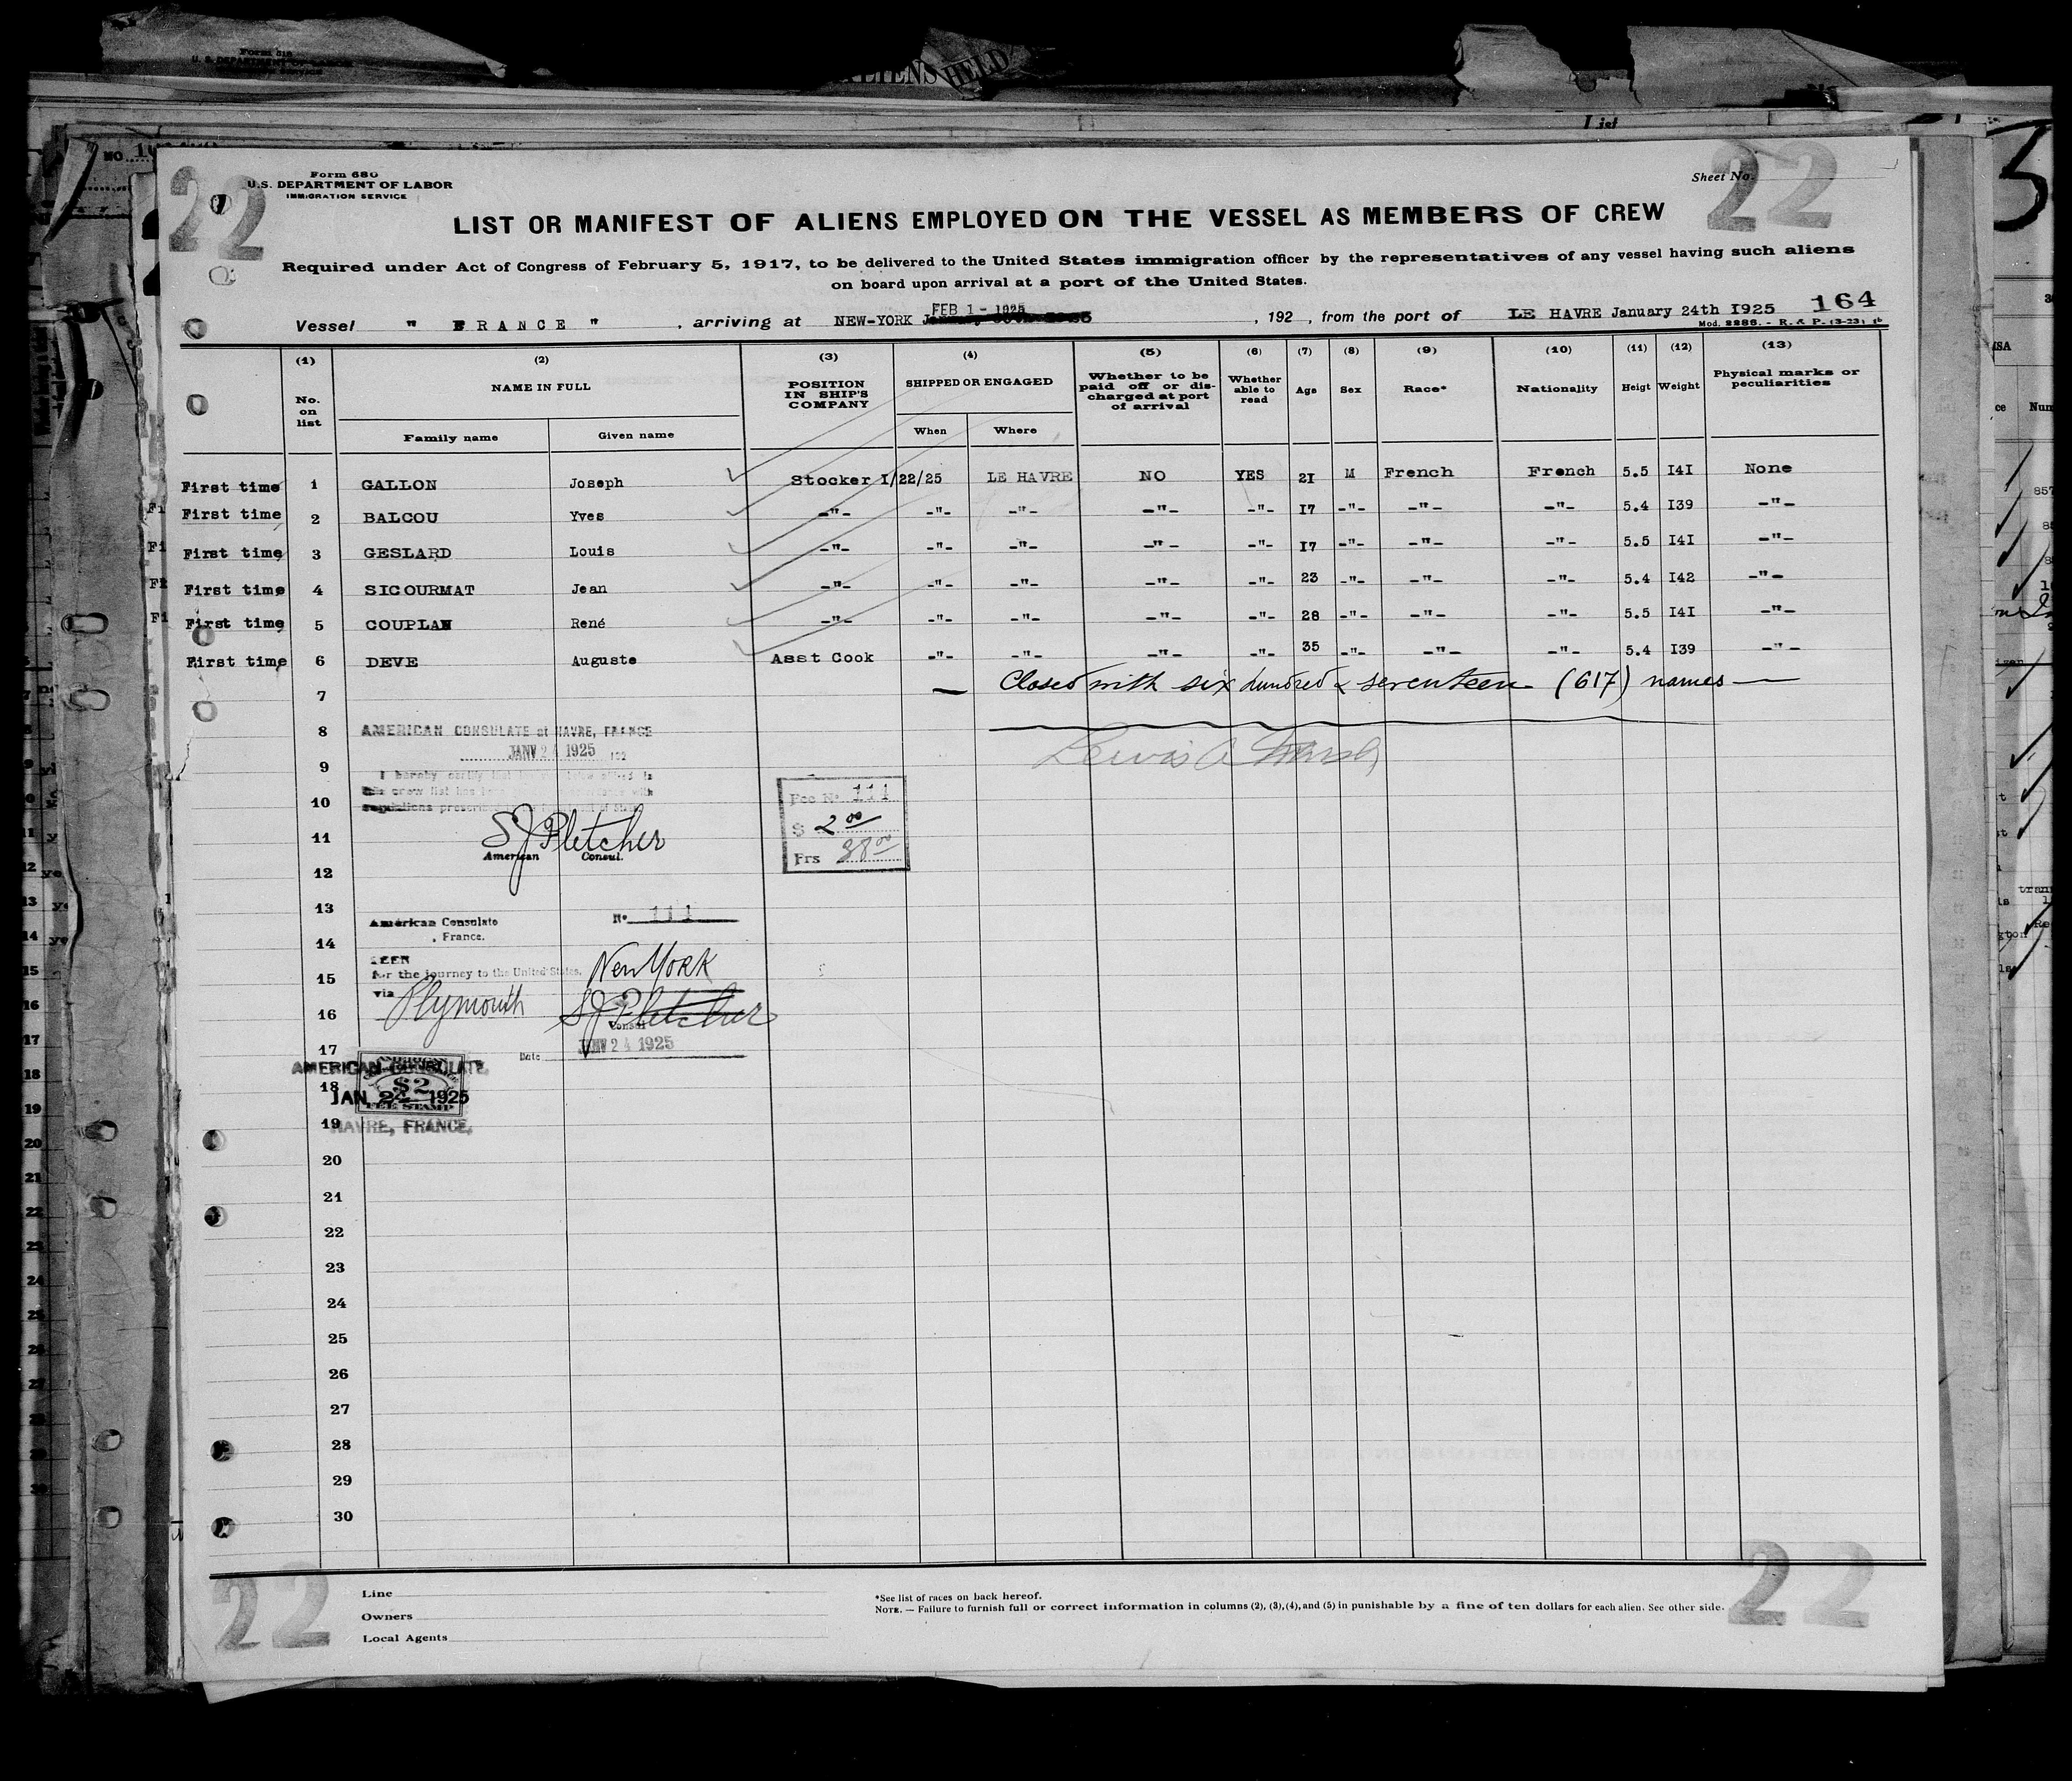 Form 680
U.S. DEPARTMENT OF LABOR
IMMIGRATION SERVICE
22
Sheet No.
22
LIST OR MANIFEST OF ALIENS EMPLOYED ON THE VESSEL AS MEMBERS OF CREW
Required under Act of Congress of February 5, 1917, to be delivered to the United States immigration officer by the representatives of any vessel having such aliens
on board upon arrival at a port of the United States.
FEB 1 - 1925
164
Vessel " FRANCE " , arriving at NEW-YORK , 192 , from the port of LE HAVRE January 24th I925
Mod. 2286. - R. & P. (3-23)
(1) (2) (3) (4) (5) (6) (7) (8) (9) (10) (11) (12) (13)
No. on list NAME IN FULL POSITION IN SHIP'S COMPANY SHIPPED OR ENGAGED Whether to be paid off or discharged at port of arrival Whether able to read Age Sex Race* Nationality Heigt Weight Physical marks or peculiarities
Family name Given name When Where
First time 1 GALLON Joseph Stocker I/22/25 LE HAVRE NO YES 2I M French French 5.5 I4I None
First time 2 BALCOU Yves -"- -"- -"- -"- -"- I7 -"- -"- -"- 5.4 I39 -"-
First time 3 GESLARD Louis -"- -"- -"- -"- -"- I7 -"- -"- -"- 5.5 I4I -"-
First time 4 SICOURMAT Jean -"- -"- -"- -"- -"- 23 -"- -"- -"- 5.4 I42 -"-
First time 5 COUPLAN René -"- -"- -"- -"- -"- 28 -"- -"- -"- 5.5 I4I -"-
First time 6 DEVE Auguste Asst Cook -"- -"- -"- -"- 35 -"- -"- -"- 5.4 I39 -"-
7 — Closed with six hundred & seventeen (617) names —
8 AMERICAN CONSULATE at HAVRE, FRANCE
JANV 24 1925 192
9
I hereby certify that
this crew list has been with
10 regulations prescribed
Fee No. 111
$ 2 00
Frs 38 00
11 S J Pletcher
American Consul.
12
13 American Consulate No. 111
, France.
14
SEEN
15 for the journey to the United States. New York
via Plymouth
16 S J Pletcher
Consul
17 Date JANV 24 1925
AMERICAN CONSULATE
AMERICAN
18 $2
JAN. 24 1925
FEE STAMP
19 HAVRE, FRANCE.
20
21
22
23
24
25
26
27
28
29
30
22
Line
Owners
Local Agents
*See list of races on back hereof.
NOTE. — Failure to furnish full or correct information in columns (2), (3), (4), and (5) in punishable by a fine of ten dollars for each alien. See other side.
22